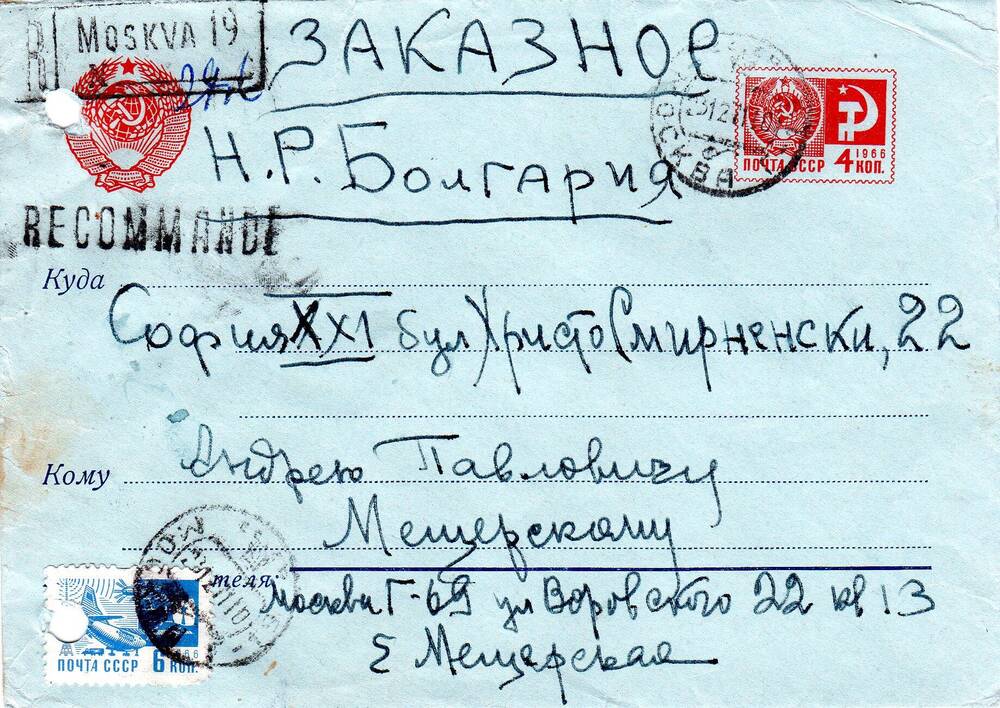 R MOSKVA 19
ЗАКАЗНОЕ
Н.Р. Болгария
МОСКВА
1966
ПОЧТА СССР 4 КОП.
RECOMMANDE
Куда
София XXI бул Христо Смирненски, 22
Андрею Павловичу
Кому
Мещерскому
теля:
Москва Г-69 ул Воровского 22 кв 13
Е Мещерская
1966
ПОЧТА СССР 6 КОП.